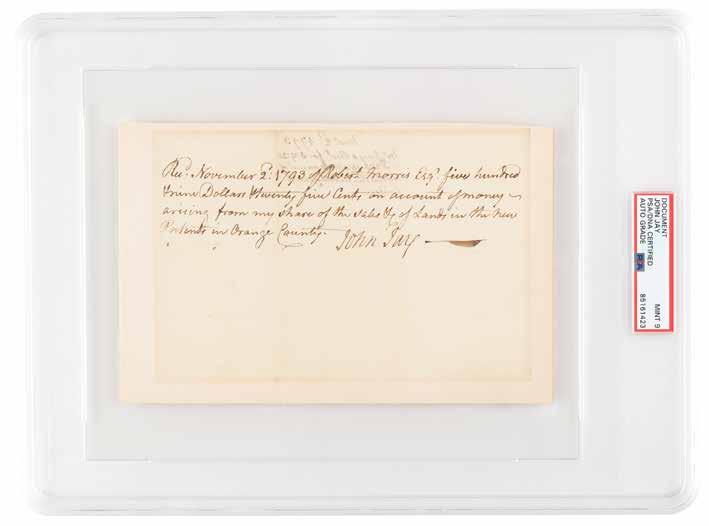 Rec.d November 2.d 1793 of Robert Morris Esq.r five hundred
& nine Dollars & twenty five Cents on account of money
arising from my share of the sales &c. of Lands in the new
Patents in Orange County.
John Jay
DOCUMENT
JOHN JAY
PSA/DNA CERTIFIED
AUTO GRADE
MINT 9
PSA
85161423